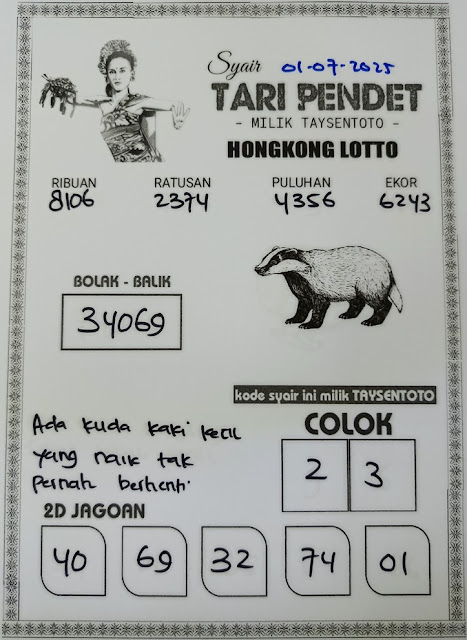 Syair 01-07-2025
TARI PENDET
- MILIK TAYSENTOTO -
HONGKONG LOTTO
RIBUAN RATUSAN PULUHAN EKOR
8106 2374 4356 6243
BOLAK - BALIK
34069
kode syair ini milik TAYSENTOTO
Ada kuda kaki kecil
yang naik tak
pernah berhenti.
COLOK
2 3
2D JAGOAN
40 69 32 74 01